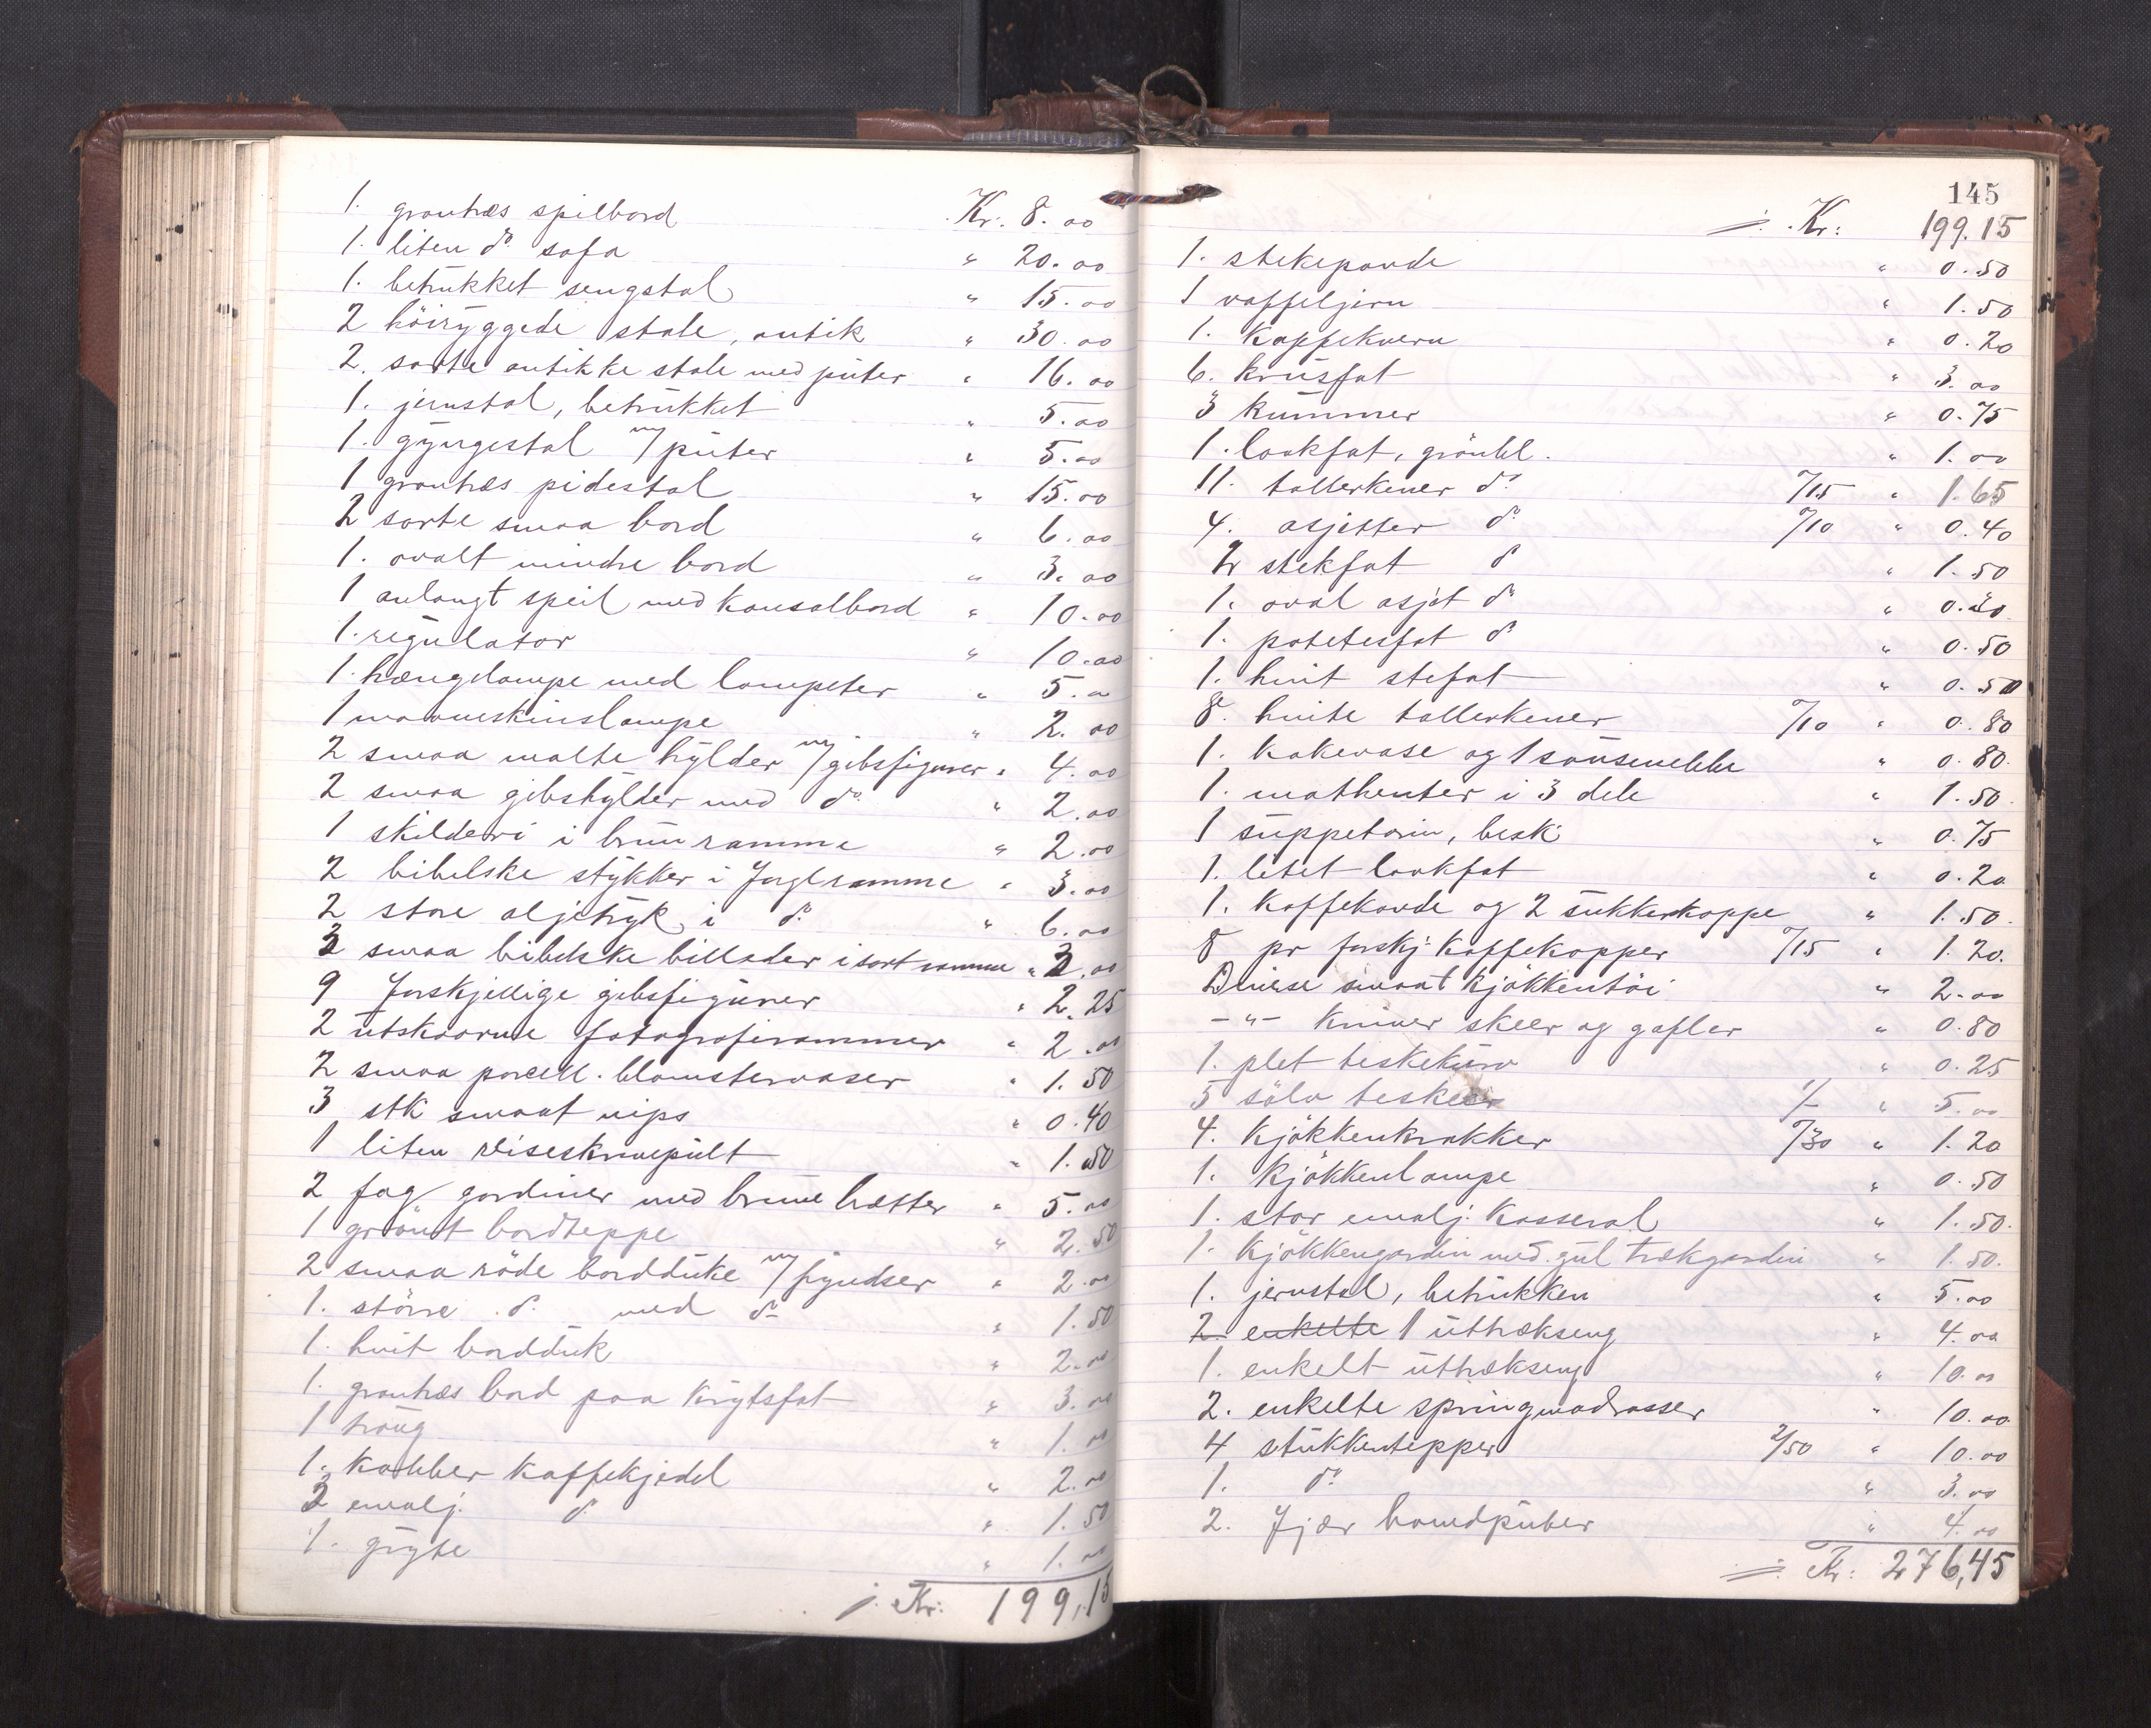 1. grantræs spilbord Kr. 8.00
1. liten do. sofa " 20.00
1. betrukket sengstol " 15.00
2 höiryggede stole, antik " 30.00
2. sorte antikke stole med puter " 16.00
1. jernstol, betrukket " 5.00
1. gyngestol m/ puter " 5.00
1 grantræs pidestal " 15.00
2 sorte smaa bord " 6.00
1. ovalt mindre bord " 3.00
1 avlangt speil med konsolbord " 10.00
1. regulator " 10.00
1. hængelampe med lampeter " 5.00
1 maaneskinslampe " 2.00
2 smaa malte hylder m/ gibsfigurer " 4.00
2 smaa gibshylder med do. " 2.00
1 skilderi i brun ramme " 2.00
2 bibelske stykker i forglramme " 3.00
2 store oljetryk i do. " 6.00
3 smaa bibelske billeder i sort ramme " 3.00
9 forskjellige gibsfigurer " 2.25
2 utskaarne fotografirammer " 2.00
2 smaa porcell. blomstervaser " 1.50
3 stk smaat nips " 0.40
1 liten reiseskrivepult " 1.50
2 fag gardiner med brune hætter " 5.00
1 grönt bordteppe " 2.50
2 smaa röde bordduke m/ fryndser " 2.00
1. större do. med do. " 1.50
1. hvit bordduk " 2.00
1. grantræs bord paa krydsfot " 3.00
1 traug " 1.00
1. kobber kaffekjedel " 2.00
2 emalj. do. " 1.50
1. gryte " 1.00
j. Kr: 199,15
145
j. Kr: 199.15
1. stekepande " 0.50
1 vaffeljern " 1.50
1. kaffekvern " 0.20
6. krusfat " 3.00
3 kummer " 0.75
1. laakfat, grönbl. " 1.00
11. tallerkener do. %15 " 1.65
4. asjetter do. %10 " 0.40
2 stekfat do " 1.50
1. oval asjet do " 0.20
1. potetesfat do " 0.50
1. hvit stefat " 0.50
8. hvite tallerkener %10 " 0.80
1. kakevase og 1 sausenebbe " 0.80.
1. mathenter i 3 dele " 1.50.
1 suppeterin, besk. " 0.75
1. litet laakfat " 0.20
1. kaffekande og 2 sukkerkoppe " 1.50.
8 pr forskj. kaffekopper %15 " 1.20.
Diverse smaat kjökkentöi " 2.00
-"- kniver skeer og gafler " 0.80
1. plet teskekurv " 0.25
5 sölv teskeer 1/- " 5.00
4. kjökkenkrakker %30 " 1.20
1. kjökkenlampe " 0.50
1. stor emalj. kasserol " 1.50.
1. kjökkengardin med gul trækgardin " 1.50.
1. jernstol, betrukken " 5.00
2. enkelte 1 uttrækseng " 4.00
1. enkelt uttrækseng " 10.00
2. enkelte springmadrasser " 10.00
4 stukkentepper 2/50 " 10.00
1. do. " 3.00
2. fjær hovedputer " 4.00
j. Kr: 276,45